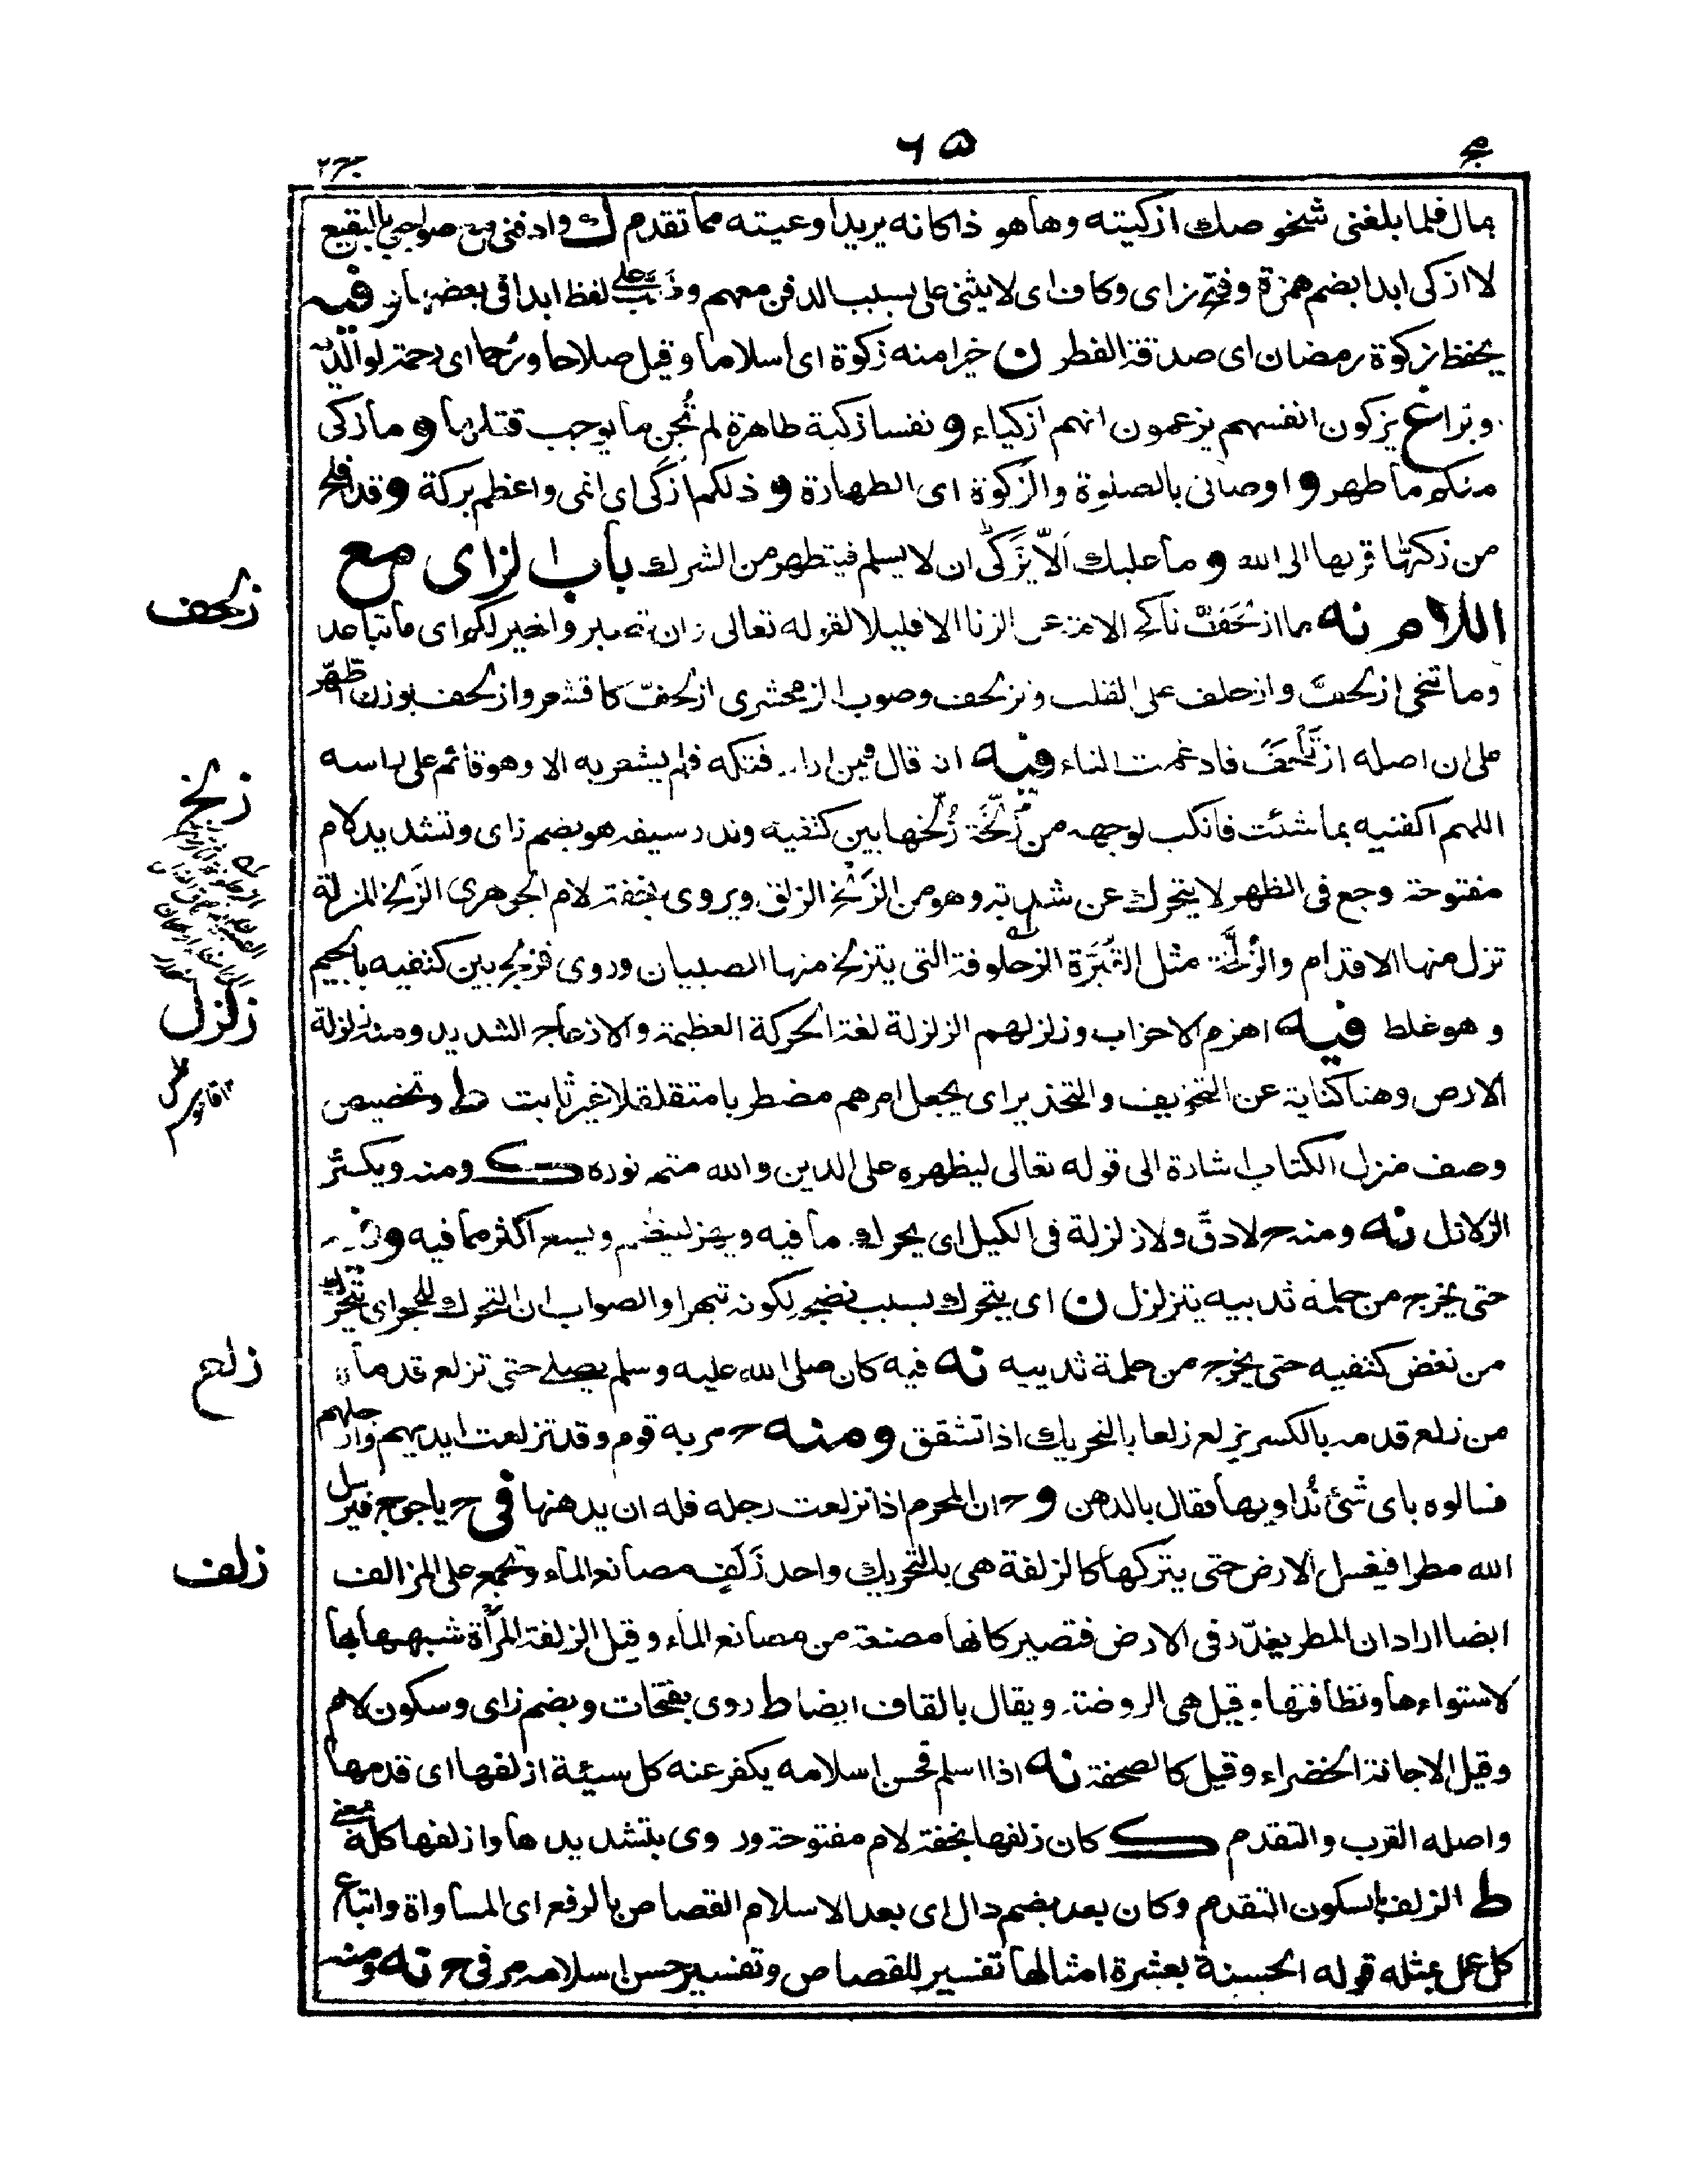 مج
٦٥
ج٢
بمال فلما بلغنى شخوصك ازكيته وها هو ذا كانه يريد اوعيته مما تقدم ك وادفنى مع صواحبي بالبقيع
لا ازكى ابدا بضم همزة وفتح زاى وكاف اى لا يثنى على بسبب الدفن معهم و لفظ ابدا فى بعضها فيه
يحفظ زكوة رمضان اى صدقة الفطر ن خيرا منه زكوة اى اسلاما وقيل صلاحا ورُحما اى رحمة لوالديه
غ يزكون انفسهم يزعمون انهم ازكياء و نفسا زكية طاهرة لم تُجن ما يوجب قتلها و ما زكى
منكم ما طهر و اوصانى بالصلوة والزكوة اى الطهارة و ذلكم ازكى اى انمى واعظم بركة و قد افلح
من زكىٰها قربها الى الله و ما عليك اَلّا يَزَّكّى ان لا يسلم فيتطهر من الشرك باب الزاى مع
اللام نه ما ازلحَفّ ناكح الامة عن الزنا الا قليلا لقوله تعالى و ان تصبروا خير لكم اى ما تباعد
وما تنحى ازلحفّ وازحلف على القلب وتزلحف وصوب الزمخشرى ازلحفّ كاقشعر وازلحف بوزن اظّهّر
على ان اصله ازتلحف فادغمت التاء فيه ان قال فمن اراد فتكه فلم يشعر به الا وهو قائم على راسه
اللهم اكفنيه بما شئت فانكب لوجهه من زُلَّخَة زُلّخها بين كتفيه وندر سيفه هو بضم زاى وتشديد لام
مفتوحة وجع فى الظهر لا يتحرك من شدته وهو من الزَلْخ الزلق ويروى بخفة لام الجوهرى الزلخ المزلة
تزل منها الاقدام والزُلَّخة مثل القُبَّرة الزحلوقة التى يتزلخ منها الصبيان وروى فزلج بين كتفيه بالجيم
و هو غلط فيه اهزم الاحزاب وزلزلهم الزلزلة لغة الحركة العظيمة والازعاج الشديد ومنه زلزلة
الارض وهنا كناية عن التخويف والتحذير اى يجعل امرهم مضطربا متقلقلا غير ثابت ط وتخصيص
وصف منزل الكتاب اشارة الى قوله تعالى ليظهره على الدين والله متم نوره ك ومنه ويكثر
الزلازل نه ومنه ح لا دقّ ولا زلزلة فى الكيل اى يحرك ما فيه ويهز لينضم ويسع اكثر مما فيه و
حتى يخرج من حلمة ثدييه يتزلزل ن اى يتحرك بسبب نضجه لكونه تهرا والصواب ان التحرك للحجر اى يتحرك
من نغض كتفيه حتى يخرج من حلمة ثدييه نه فيه كان صلى الله عليه وسلم يصلى حتى تزلع قدماه
من زلع قدمه بالكسر يزلع زلعا بالتحريك اذا تشقق ومنه ح مر به قوم وقد تزلعت ايديهم وارجلهم
فسالوه باى شئ نُداويها فقال بالدهن و ح ان المحرم اذا تزلعت رجله فله ان يدهنها فى ح ياجوج فيرسل
الله مطرا فيغسل الارض حتى يتركها كالزلفة هى بالتحريك واحد زَلَف مصانع الماء وتجمع على المزالف
ايضا اراد ان المطر يغدّر فى الارض فتصير كانها مصنعة من مصانع الماء وقيل الزلفة المرأة شبهها بها
لاستواءها ونظافتها وقيل هى الروضة ويقال بالقاف ايضا ط روى بفتحات وبضم زاى وسكون لام
وقيل الاجانة الخضراء وقيل كالصحفة نه اذا اسلم فحسن اسلامه يكفر عنه كل سيئة ازلفها اى قدمها
واصله القرب والتقدم ك كان زلفها بخفة لام مفتوحة وروى بتشديدها وازلفها كله بمعنى
ط الزلف بسكون التقدم وكان بعد بضم دال اى بعد الاسلام القصاص بالرفع اى المساواة واتباع
كل عمل بمثله قوله الحسنة بعشرة امثالها تفسير للقصاص وتفسير حسن اسلامه مر فى ح نه ومنه
زلحف
زلخ
زلزل
زلع
زلف